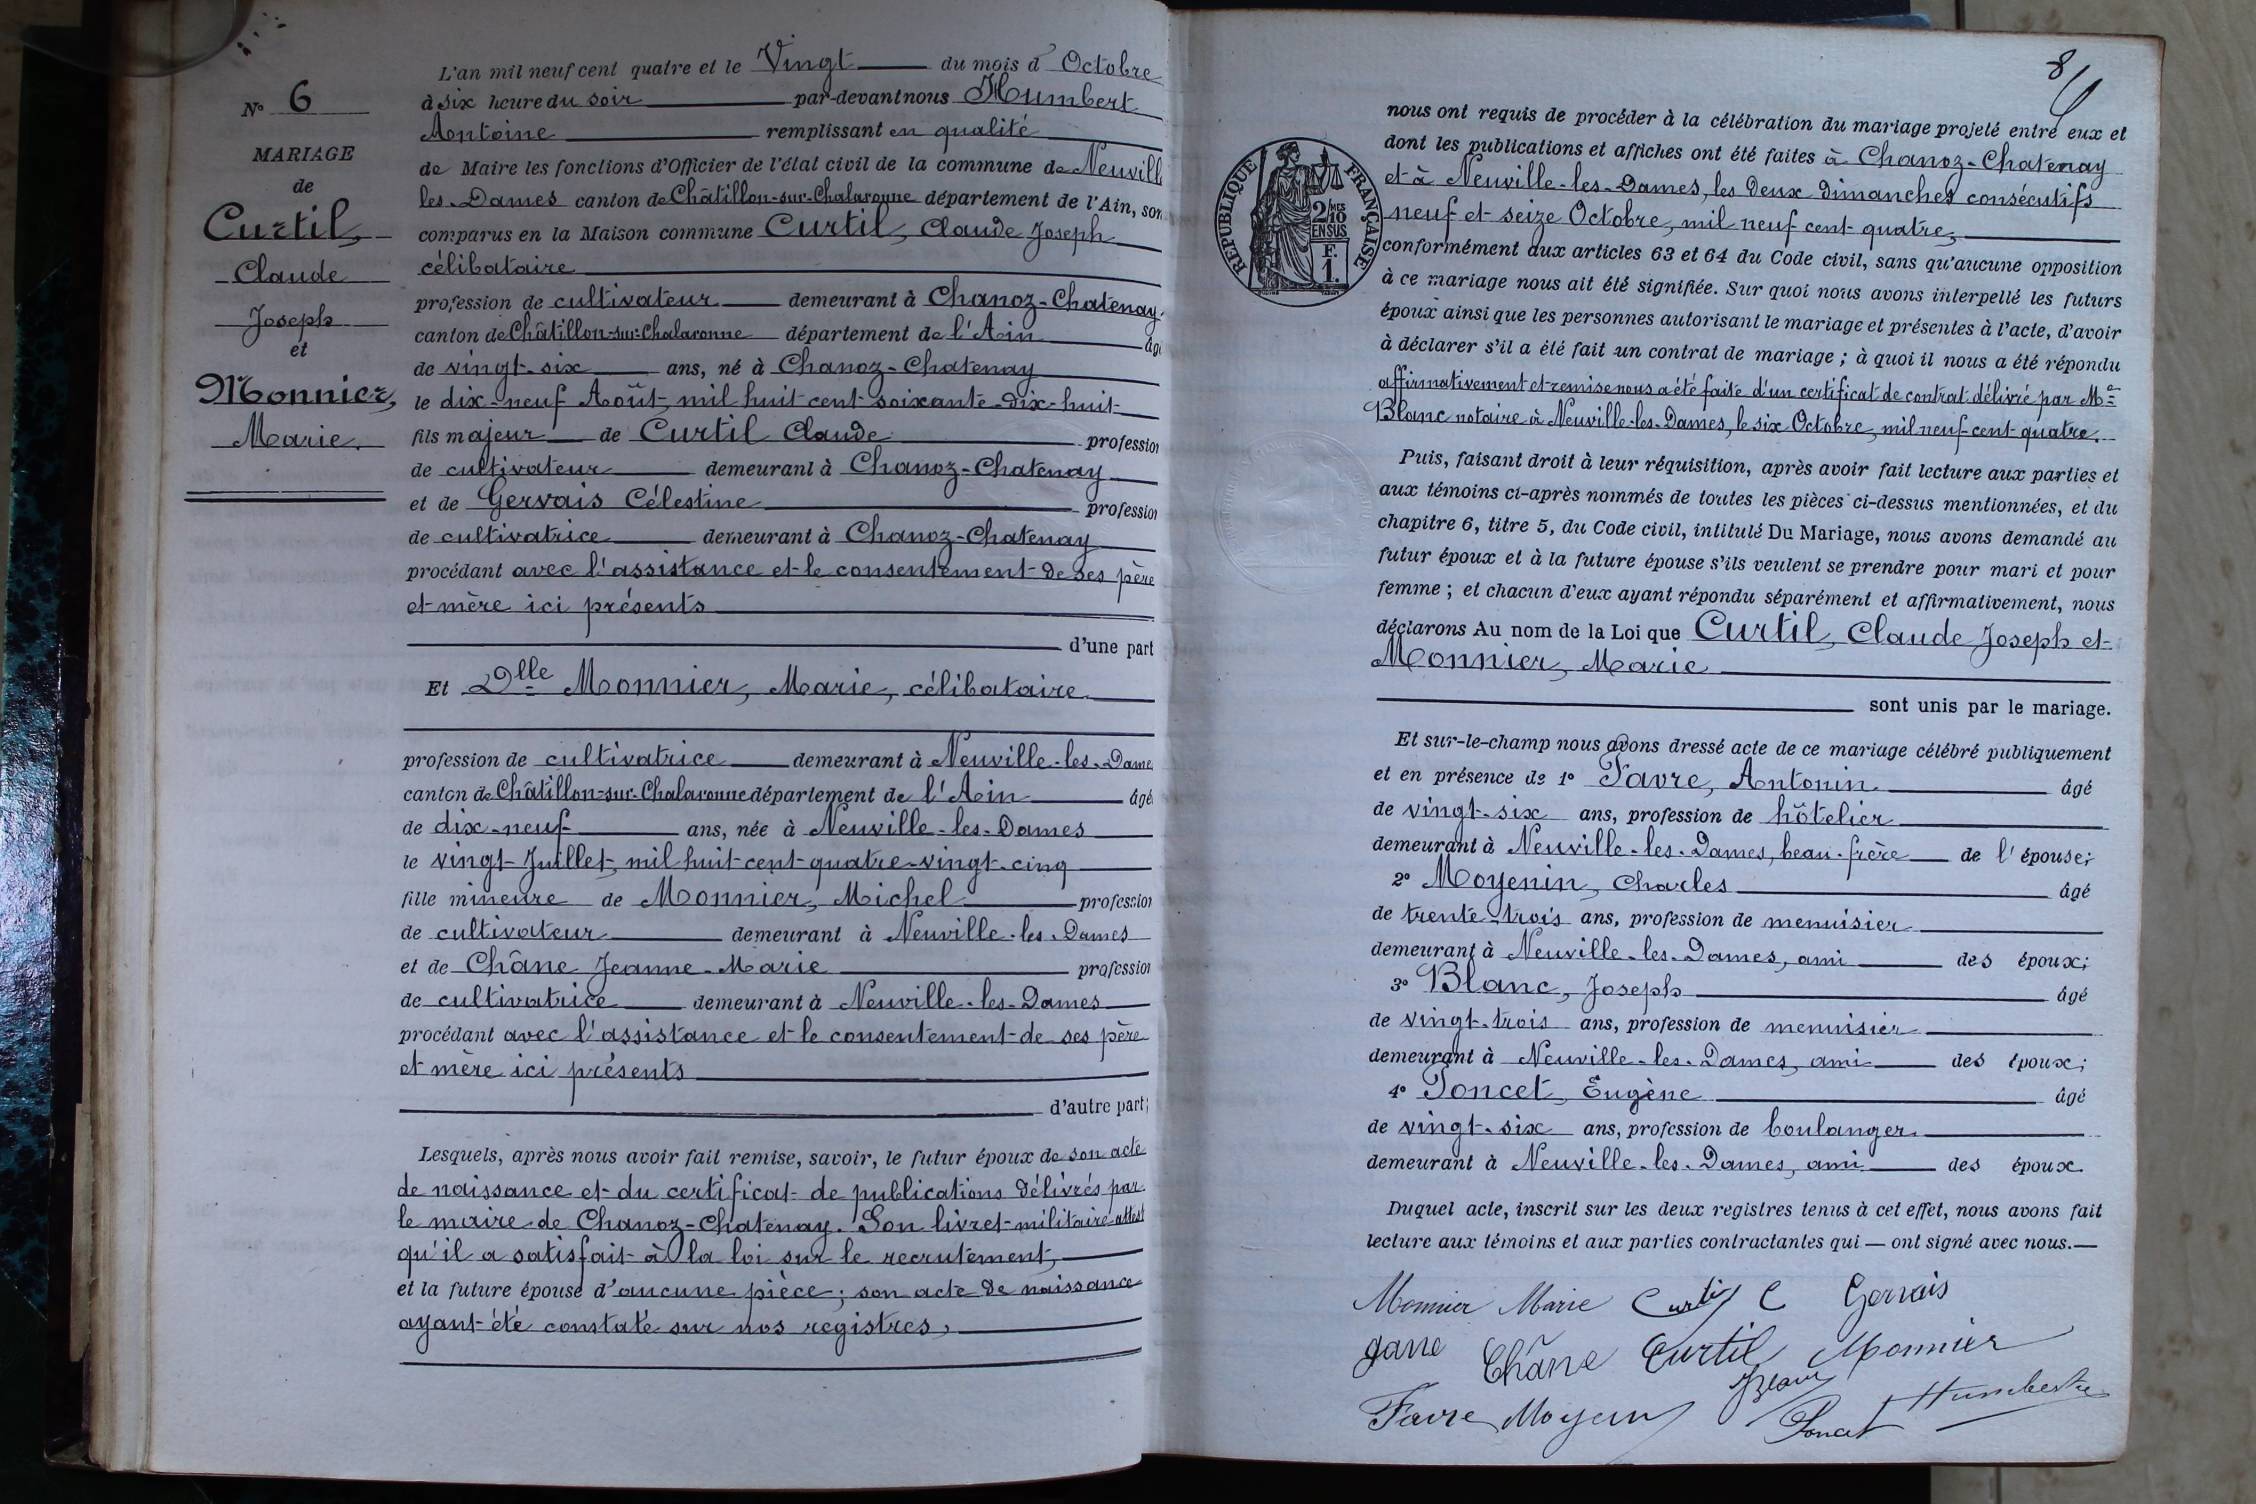 N° 6
MARIAGE
de
Curtil,
Claude
Joseph
et
Monnier,
Marie.
L'an mil neuf cent quatre et le Vingt du mois d'Octobre
à six heure du soir par-devant nous Humbert
Antoine remplissant en qualité
de Maire les fonctions d'Officier de l'état civil de la commune de Neuville
les-Dames canton de Châtillon-sur-Chalaronne département de l'Ain, son
comparus en la Maison commune Curtil, Claude Joseph
célibataire
profession de cultivateur demeurant à Chanoz-Chatenay,
canton de Châtillon-sur-Chalaronne département de l'Ain âgé
de vingt-six ans, né à Chanoz-Chatenay
le dix-neuf Août, mil huit cent soixante-dix-huit
fils majeur de Curtil Claude profession
de cultivateur demeurant à Chanoz-Chatenay
et de Gervais Célestine profession
de cultivatrice demeurant à Chanoz-Chatenay
procédant avec l'assistance et le consentement de ses père
et mère ici présents
d'une part
Et Dlle Monnier, Marie, célibataire
profession de cultivatrice demeurant à Neuville-les-Dame
canton de Châtillon-sur-Chalaronne département de l'Ain âgé
de dix-neuf ans, née à Neuville-les-Dames
le vingt Juillet, mil huit cent quatre-vingt-cinq
fille mineure de Monnier, Michel profession
de cultivateur demeurant à Neuville-les-Dames
et de Châne Jeanne-Marie profession
de cultivatrice demeurant à Neuville-les-Dames
procédant avec l'assistance et le consentement de ses père
et mère ici présents
d'autre part;
Lesquels, après nous avoir fait remise, savoir, le futur époux de son acte
de naissance et du certificat de publications délivrés par
le maire de Chanoz-Chatenay. Son livret militaire attest
qu'il a satisfait à la loi sur le recrutement,
et la future épouse d'aucune pièce; son acte de naissance
ayant été constaté sur nos registres,
8
REPUBLIQUE FRANÇAISE
2/10 MES
EN SUS
F.
1.
nous ont requis de procéder à la célébration du mariage projeté entre eux et
dont les publications et affiches ont été faites à Chanoz-Chatenay
et à Neuville-les-Dames, les deux dimanches consécutifs
neuf et seize Octobre, mil neuf cent quatre,
conformément aux articles 63 et 64 du Code civil, sans qu'aucune opposition
à ce mariage nous ait été signifiée. Sur quoi nous avons interpellé les futurs
époux ainsi que les personnes autorisant le mariage et présentes à l'acte, d'avoir
à déclarer s'il a été fait un contrat de mariage; à quoi il nous a été répondu
affirmativement et remise nous a été faite d'un certificat de contrat délivré par Me
Blanc notaire à Neuville-les-Dames, le six Octobre, mil neuf cent quatre.
Puis, faisant droit à leur réquisition, après avoir fait lecture aux parties et
aux témoins ci-après nommés de toutes les pièces ci-dessus mentionnées, et du
chapitre 6, titre 5, du Code civil, intitulé Du Mariage, nous avons demandé au
futur époux et à la future épouse s'ils veulent se prendre pour mari et pour
femme; et chacun d'eux ayant répondu séparément et affirmativement, nous
déclarons Au nom de la Loi que Curtil, Claude Joseph et
Monnier, Marie
sont unis par le mariage.
Et sur-le-champ nous avons dressé acte de ce mariage célébré publiquement
et en présence de 1° Favre, Antonin âgé
de vingt-six ans, profession de hôtelier
demeurant à Neuville-les-Dames, beau-frère de l'épouse;
2° Moyenin, Charles âgé
de trente-trois ans, profession de menuisier
demeurant à Neuville-les-Dames, ami des époux;
3° Blanc, Joseph âgé
de vingt-trois ans, profession de menuisier
demeurant à Neuville-les-Dames, ami des époux;
4° Poncet, Eugène âgé
de vingt-six ans, profession de boulanger
demeurant à Neuville-les-Dames, ami des époux.
Duquel acte, inscrit sur les deux registres tenus à cet effet, nous avons fait
lecture aux témoins et aux parties contractantes qui — ont signé avec nous.—
Monnier Marie Curtil C Gervais
Jane Châne Curtil Monnier
Blanc
Favre Moyenin Poncet Humbert